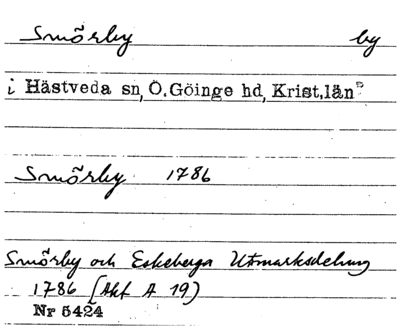 Smörby by
i Hästveda sn, Ö.Göinge hd, Krist.län
Smörby 1786
Smörby och Eskeberga Utmarksdelning
1786 (Akt A 19)
Nr 5424